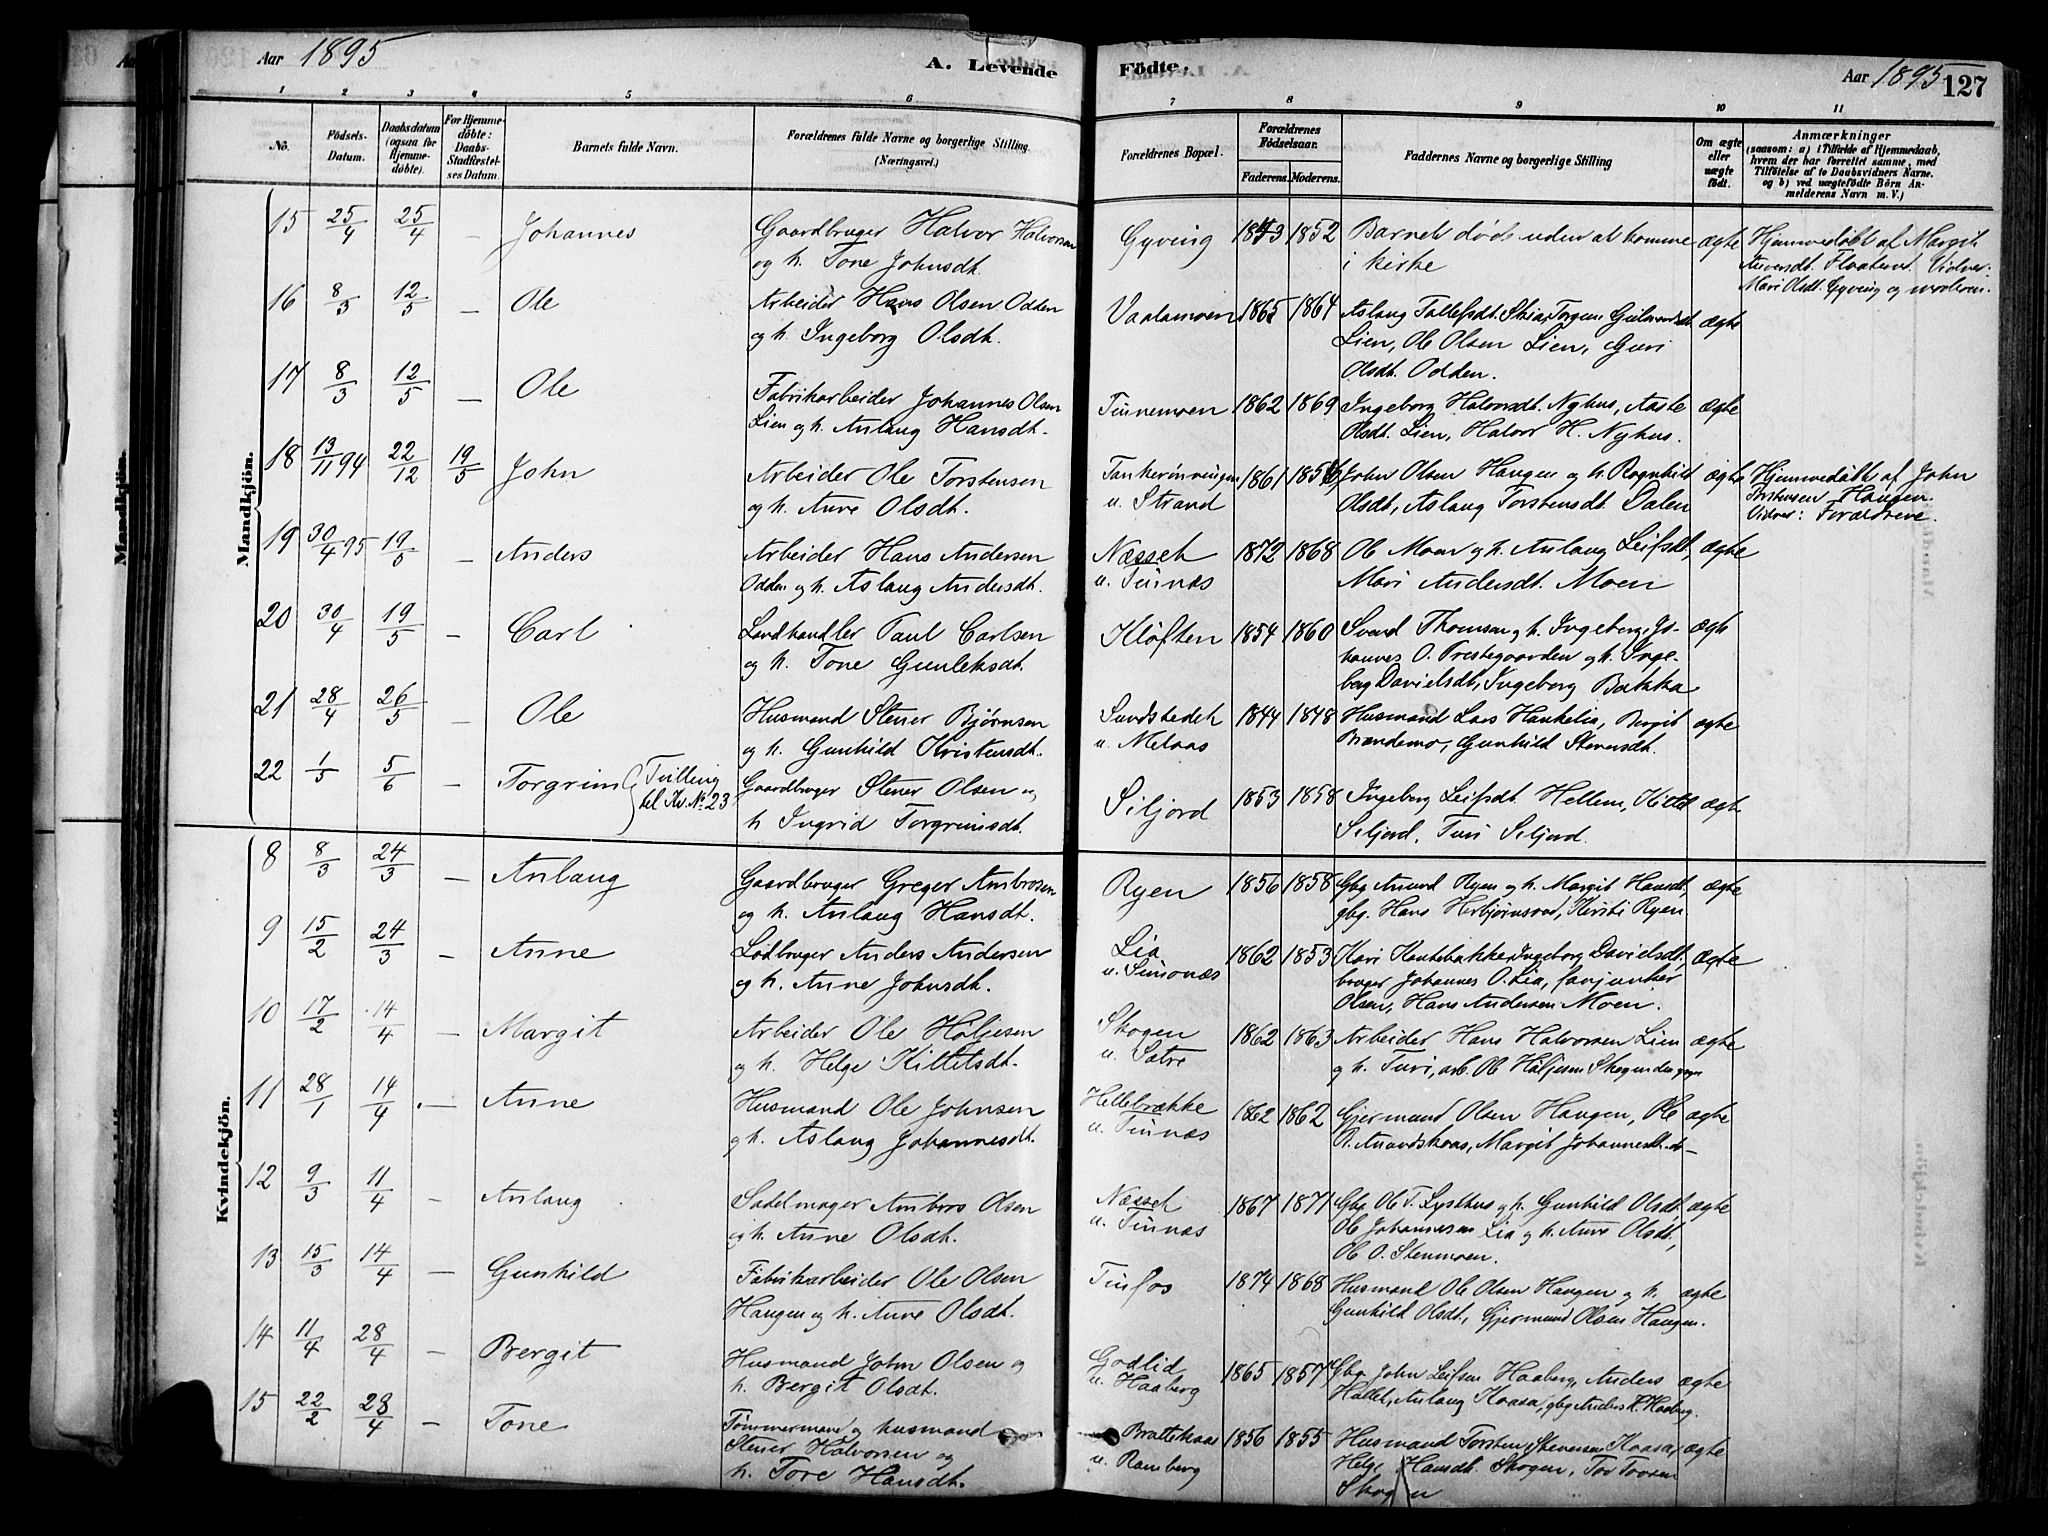 Aar 1895
A. Levende Födte.
Aar 1895 127
1 2 3 4 5 6 7 8 9 10 11
No.
Födsels-Datum.
Daabsdatum (ogsaa for Hjemmedöbte).
For Hjemmedöbte: Daabs-Stadfæstelses Datum.
Barnets fulde Navn.
Forældrenes fulde Navne og borgerlige Stilling. (Næringsvei.)
Forældrenes Bopæl.
Forældrenes Födselsaar.
Faderens. Moderens.
Faddernes Navne og borgerlige Stilling
Om ægte eller uægte födt.
Anmærkninger
(saasom: a) i Tilfælde af Hjemmedaab, hvem der har forrettet samme, med Tilföielse af to Daabsvidners Navne, og b) ved uægtefödte Börn Anmelderens Navn m. V.)
Mandkjön.
15 25/4 25/4 – Johannes Gaardbruger Halvor Halvorsen Gyving 1843 1852 Barnet døde uden at komme ægte Hjemmedøbt af Margit
og h. Tone Johnsdt. i kirke
Mari Olsdt. Gyving og moderen.
16 8/3 12/5 – Ole Arbeider Hans Olsen Odden Vaalamoen 1865 1864 Aslaug ægte
og h. Ingeborg Olsdt. Lien, Ole Olsen Lien, Guri
Olsdt. Odden.
17 8/3 12/5 – Ole Fabrikarbeider Johannes Olsen Tinnemoen 1862 1869 Ingeborg Halvorsdt. Nyhus, Aaste ægte
Lien og h. Anlaug Hansdt. Olsdt. Lien, Halvor H. Nyhus.
18 13/11 94 22/12 19/5 John Arbeider Ole Torstensen 1861 John Olsen Haugen og h. Ragnhild ægte Hjemmedøbt af John
og h. Anne Olsdt. u. Strand Olsdt, Aslaug Torstensdt. Dalen Torstensen Haugen.
Vidner: Forældrene.
19 30/4 95 19/5 – Anders Arbeider Hans Andersen Næsset 1872 1868 Ole Moen og h. Anlaug Leifsdt, ægte
Odden og h. Aslaug Andersdt. u. Tinnæs Mari Andersdt. Moen
20 30/4 19/5 – Carl Landhandler Paul Carlsen Kløften 1854 1860 Svend Thomsen og h. Ingeborg, Jo- ægte
og h. Tone Gunleksdt. hannes O. Prestegaarden og h. Inge-
borg Davidsdt, Ingeborg Bakka
21 28/4 26/5 – Ole Husmand Stener Bjørnsen Sundstedet 1844 1848 Husmand Lars Haukelia, Bergit ægte
og h. Gunhild Kristensdt. u. Melaas Brændemo, Gunhild Stenersdt.
22 1/5 5/6 – Torgrim (Tvilling til Kv. No 23 Gaardbruger Stener Olsen og Siljord 1853 1858 Ingeborg Leifsdt. Hellem, Kittil ægte
h Ingrid Torgrimsdt. Siljord, Turi Siljord.
Kvindekjön.
8 8/3 24/3 – Anlaug Gaardbruger Greger Ambrosen Ryen 1856 1858 Gbg Anund Ryen og h. Margit Hansdt, ægte
og h. Anlaug Hansdt. gbg. Hans Herbjørnsrød, Kirsti Ryen.
9 15/2 24/3 – Anne Lodbruger Anders Andersen Lia 1862 1853 Kari Ingeborg Davidsdt, ægte
og h. Anne Johnsdt. u. Simonæs bruger Johannes O. Lia, fanjunker
Olsen, Hans Andersen Moen.
10 17/2 14/4 – Margit Arbeider Ole Høljesen Skogen 1862 1863 Arbeider Hans Halvorsen Lien ægte
og h. Helge Kittilsdt. u. Sætre og h. Turi, arb. Ole Høljesen Skogen
11 28/1 14/4 – Anne Husmand Ole Johnsen Hellebrække 1862 1862 Gjermund Olsen Haugen, Ole ægte
og h. Aslaug Johannesdt. u. Tinnæs Margit Johannesdt.
12 9/3 11/4 – Anlaug Sadelmager Ambros Olsen Næsset 1867 1871 Gbg Ole T. Lysthus og h. Gunhild Olsdt, ægte
og h. Anne Olsdt. u. Tinnæs Ole Johannesen Lia og h. Anne Olsdt,
Ole O. Stenmoen.
13 15/3 14/4 – Gunhild Fabrikarbeider Ole Olsen Tinfos 1874 1868 Husmand Ole Olsen Haugen og h. ægte
Haugen og h. Anne Olsdt. Gunhild Olsdt, Gjermund Olsen Haugen.
14 11/4 28/4 – Bergit Husmand John Olsen og Godlid 1865 1857 Gbg John Leifsen Haaberg, Anders ægte
h. Bergit Olsdt. u. Haaberg Anlaug Kaasa, gbg Anders K. Haaberg.
15 22/2 28/4 – Tone Tømmermand og husmand Brattekaas 1856 1855 Husmand Torsten Stenersen Kaasa, ægte
Stener Halvorsen og u. Ramberg Helge Hansdt. Skogen, Tov Tovsen
h. Tore Hansdt. Skogen